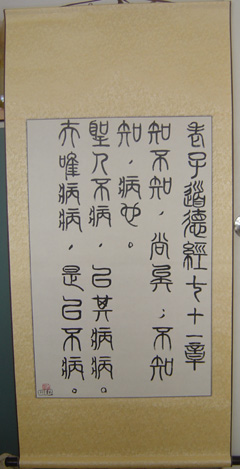 老子道德經七十一章
知不知，尚矣；不知
知，病也。
聖人不病，以其病病。
夫唯病病，是以不病。